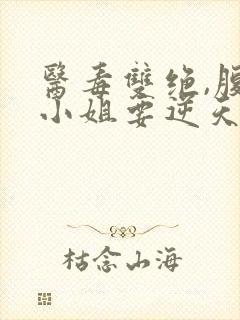 醫毒雙绝,腹
小姐要逆天
枯念山海